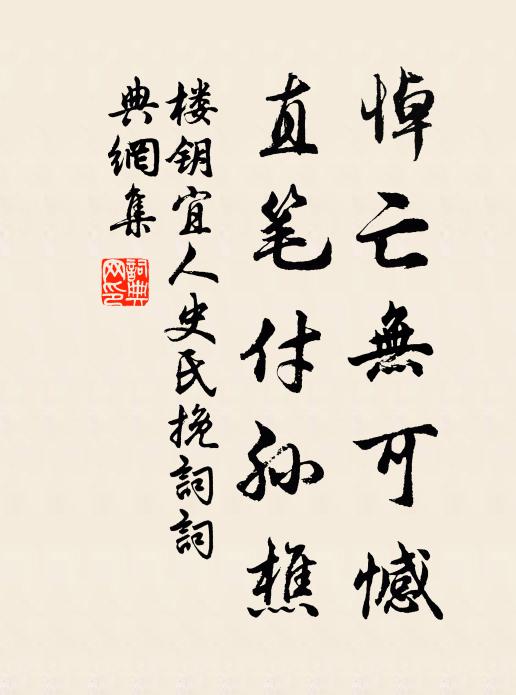 悼亡無可憾
直笔付孙樵
楼钥宜人史氏挽詞詞
典網集
詞典网印